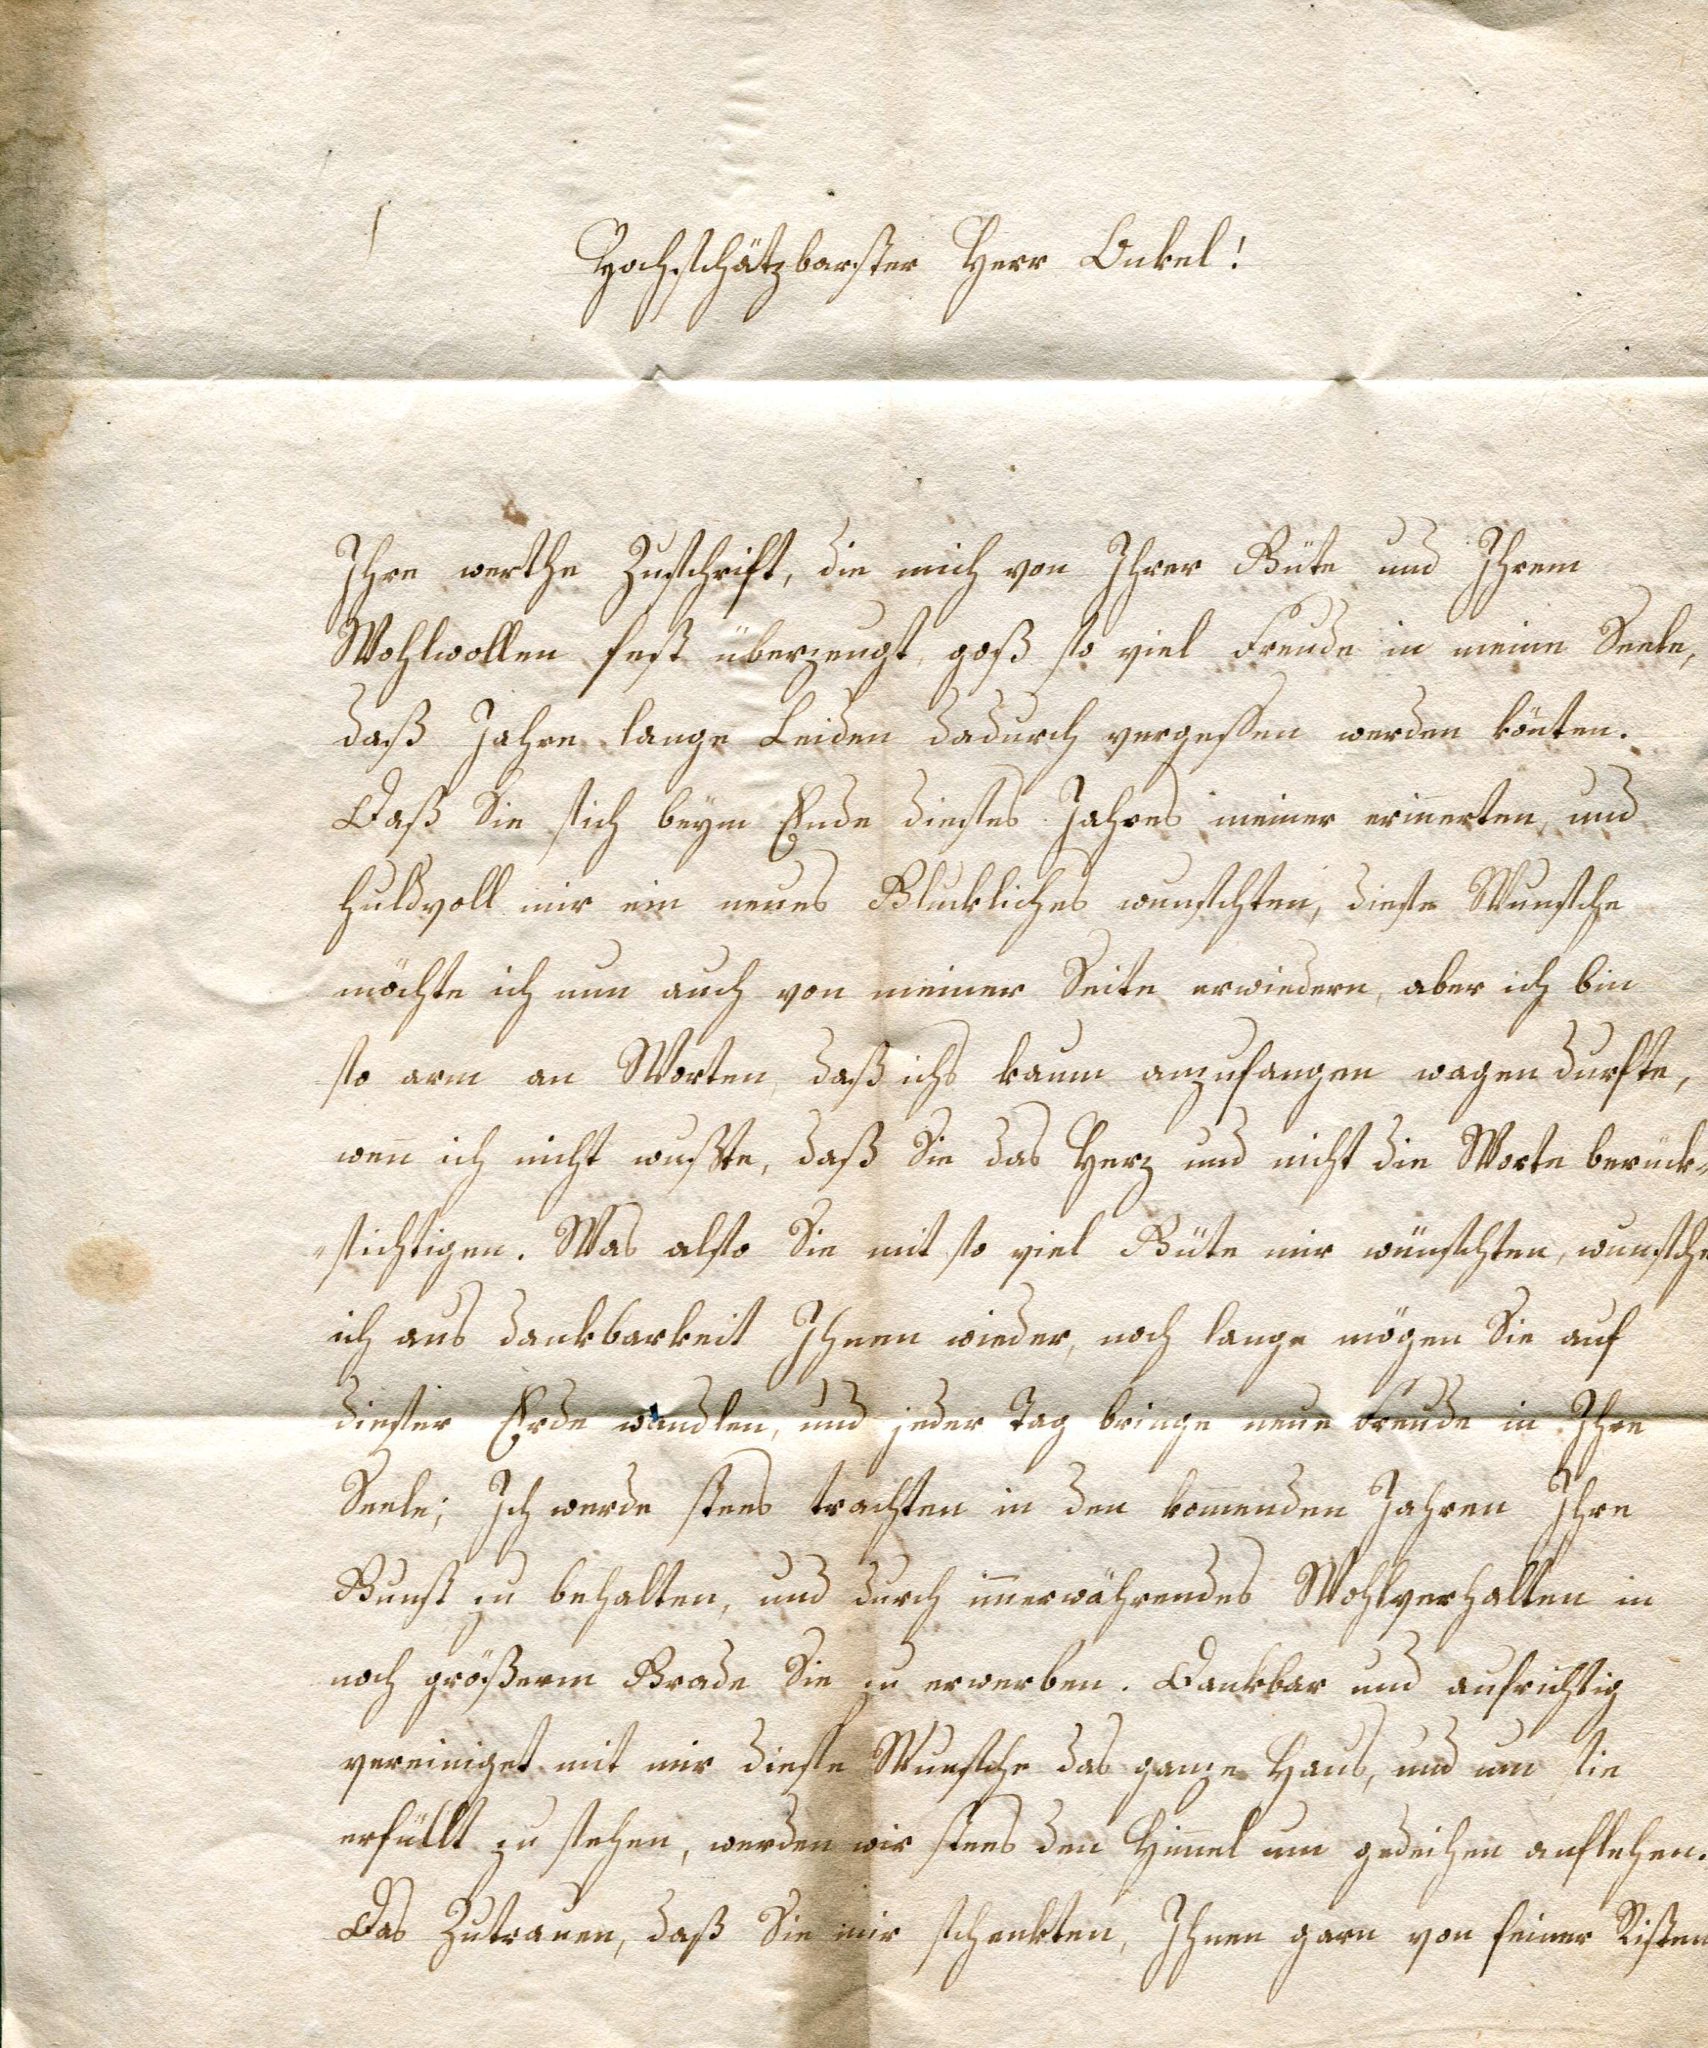 Hochschätzbarster Herr Onkel!
Ihre werthe Zuschrift, die mich von Ihrer Güte und Ihrem
Wohlwollen fest überzeugt, goß so viel Freude in meine Seele,
daß Jahre lange Leiden dadurch vergessen werden könten.
Daß Sie sich beym Ende dieses Jahres meiner erinerten, und
huldvoll mir ein neues Gluckliches wunschten, diese Wunsche
möchte ich nun auch von meiner Seite erwiedern, aber ich bin
so arm an Worten, daß ichs kaum anzufangen wagen durfte,
wen ich nicht wußte, daß Sie das Herz und nicht die Worte berück-
-sichtigen. Was also Sie mit so viel Güte mir wünschten, wunsche
ich aus dankbarkeit Ihnen wieder, noch lange mögen Sie auf
dieser Erde wandlen, und jeder Tag bringe neue Freude in Ihre
Seele; Ich werde stets trachten in den komenden Jahren Ihre
Gunst zu behalten, und durch imerwährendes Wohlverhalten in
noch größerm Grade Sie zu erwerben. Dankbar und aufrichtig
vereiniget mit mir diese Wunsche das ganze Haus, und um sie
erfüllt zu sehen, werden wir stets den Himel um gedeihen anflehen.
Das Zutrauen, daß Sie mir schenkten, Ihnen garn von feiner Risten